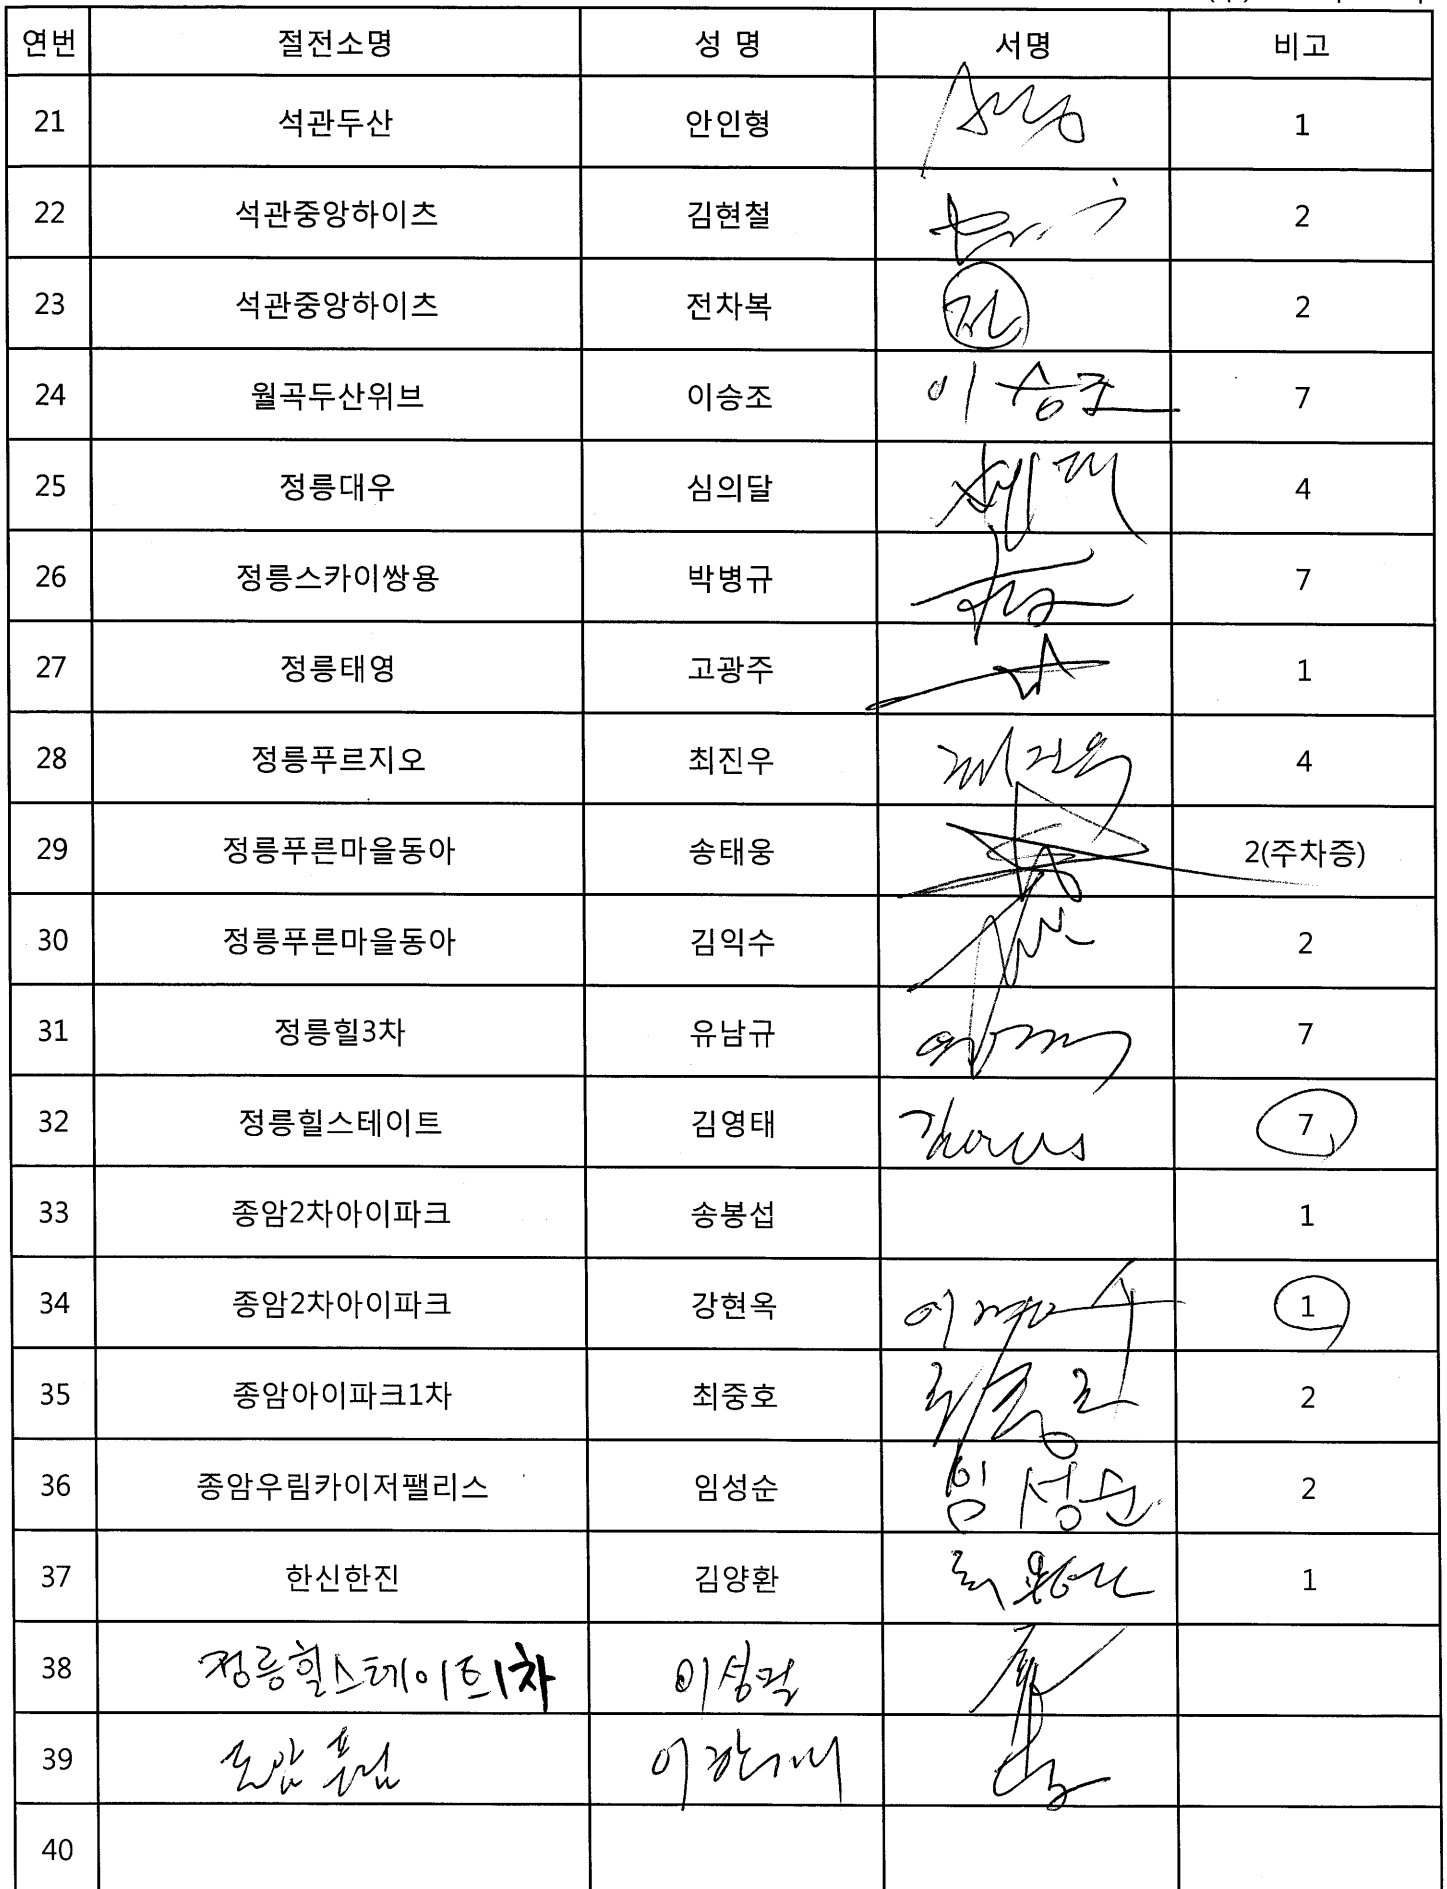 연번 절전소명 성 명 서명 비고
21 석관두산 안인형 1
22 석관중앙하이츠 김현철 2
23 석관중앙하이츠 전차복 전 2
24 월곡두산위브 이승조 이승조 7
25 정릉대우 심의달 4
26 정릉스카이쌍용 박병규 7
27 정릉태영 고광주 1
28 정릉푸르지오 최진우 4
29 정릉푸른마을동아 송태웅 2(주차증)
30 정릉푸른마을동아 김익수 2
31 정릉힐3차 유남규 7
32 정릉힐스테이트 김영태 7
33 종암2차아이파크 송봉섭 1
34 종암2차아이파크 강현옥 1
35 종암아이파크1차 최중호 2
36 종암우림카이저팰리스 임성순 임성순 2
37 한신한진 김양환 1
38 정릉힐스테이트1차
39
40